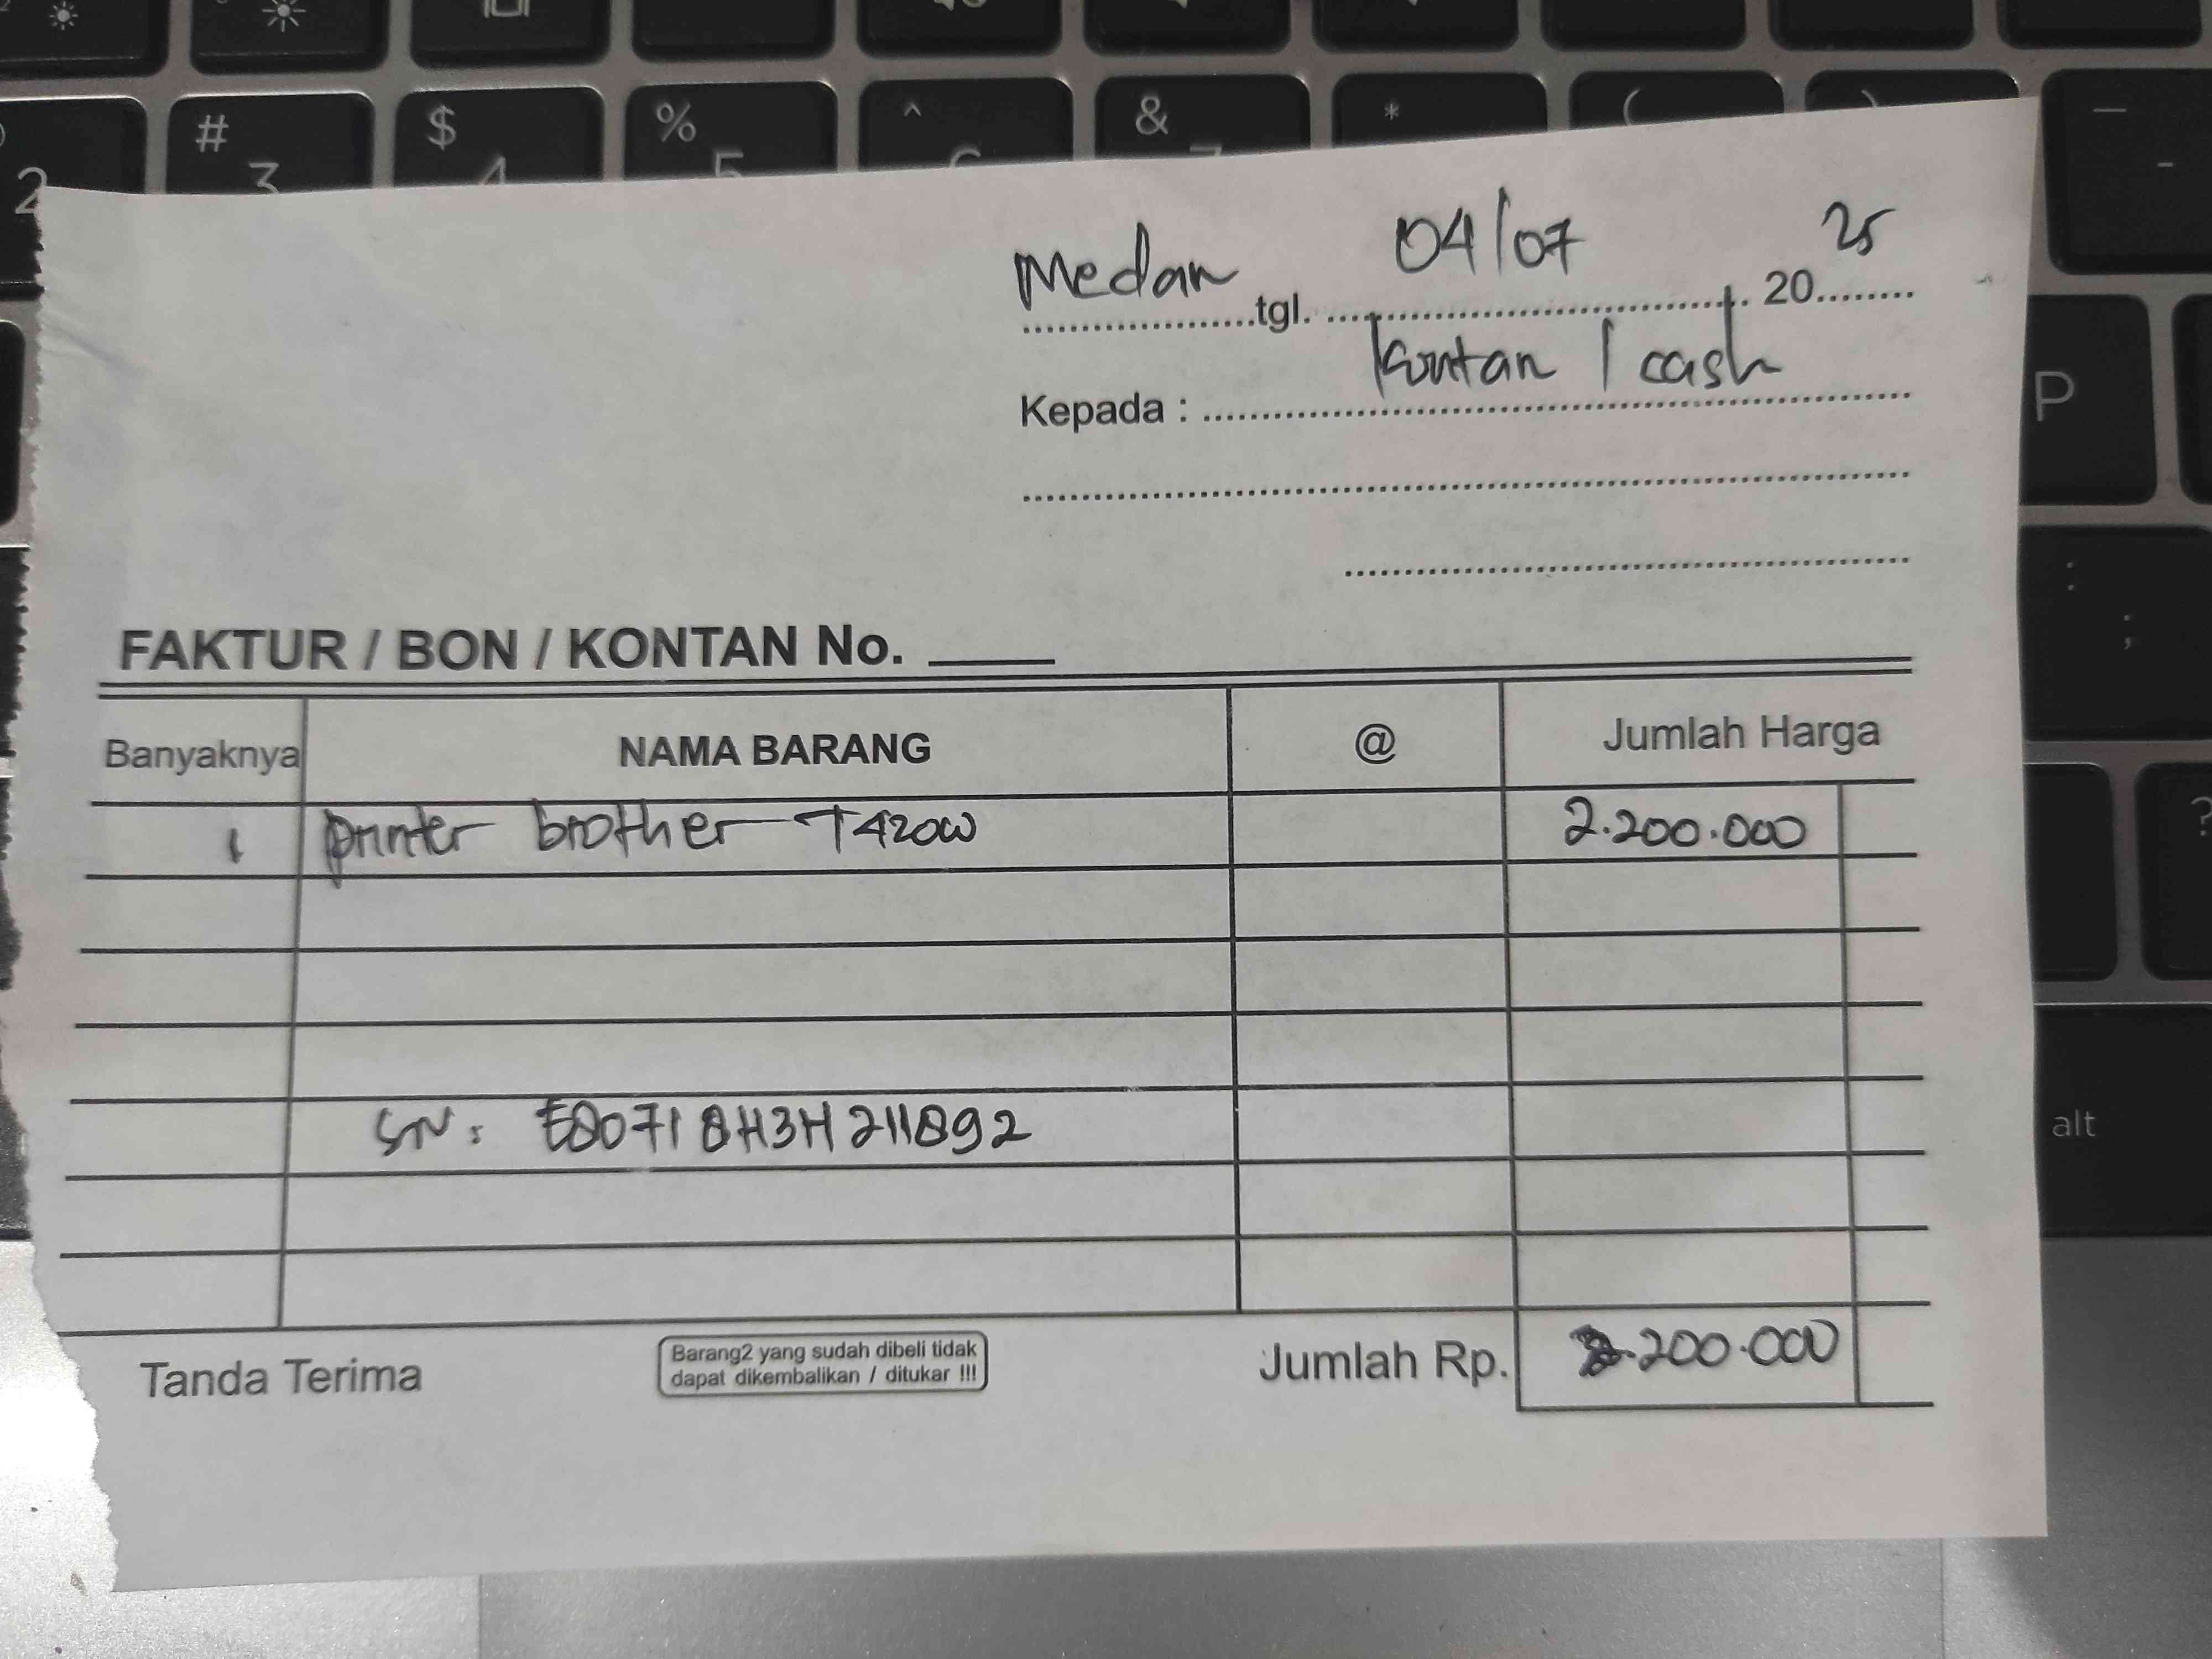 # $ % ^ & * ( )
2 3 4 5 6 7 -
Medan tgl. 04/07 2025
Kepada : kontan / cash
P
: ;
FAKTUR / BON / KONTAN No.
Banyaknya NAMA BARANG @ Jumlah Harga
1 printer brother T420W 2.200.000
?
SN: E80718H3H211892
alt
Tanda Terima Barang2 yang sudah dibeli tidak dapat dikembalikan / ditukar !!! Jumlah Rp. 2.200.000